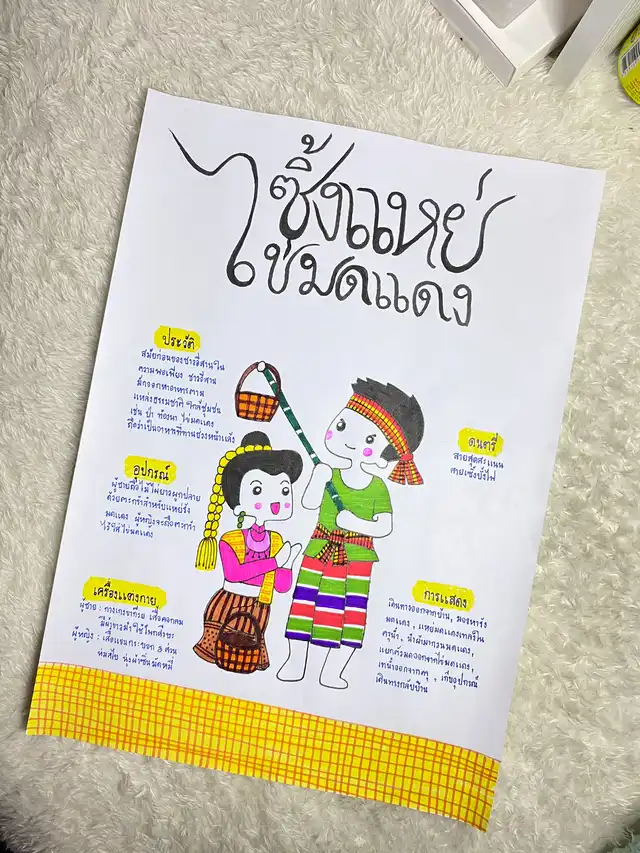 เซิ้งแหย่
ไข่มดแดง
ประวัติ
สมัยก่อนของชาวอีสานใน
ความพอเพียง ชาวอีสาน
มักออกหาอาหารตาม
แหล่งธรรมชาติ ใกล้ชุมชน
เช่น ป่า ท้องนา ไข่มดแดง
ถือว่าเป็นอาหารที่ทานช่วงหน้าแล้ง
อุปกรณ์
ผู้ชายถือไม้ไผ่ยาวผูกปลาย
ด้วยตะกร้าสำหรับแหย่รัง
มดแดง ผู้หญิงจะถือตะกร้า
ไว้ใส่ไข่มดแดง
เครื่องแต่งกาย
ผู้ชาย : กางเกงขาก๊วย เสื้อคอกลม
มีผ้าขาวม้าใช้โพกศีรษะ
ผู้หญิง : เสื้อแขนกระบอก 3 ส่วน
ห่มสไบ นุ่งผ้าซิ่นมัดหมี่
ดนตรี
ลายสุดสะแนน
ลายเซิ้งบั้งไฟ
การแสดง
เดินทางออกจากบ้าน, มองหารัง
มดแดง , แหย่มดแดงเทลงใน
ครุน้ำ , นำผ้ามากวนมดแดง,
แยกตัวมดออกจากไข่มดแดง,
เทน้ำออกจากครุ , เก็บอุปกรณ์
เดินทางกลับบ้าน